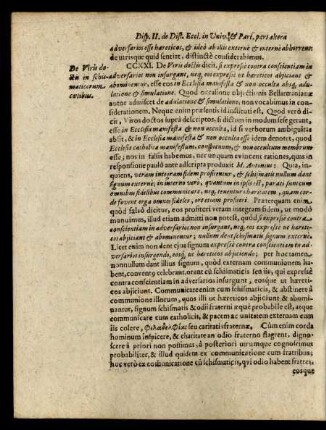 Disp. II. de Dist. Eccl. in Univers. & Part. pars altera
adversarios esse hæreticos, & ideò ab illis externè & internè abhorreret
de utrinque quid sentit, distinctè considerabimus.
De Viris doctis in
CCXXI. De Viris doctis dicit, si expressè contra conscientiam in
adversarios non insurgant, neq, eos expressè ut hæreticos abjiciunt &
abominentur, eos esse in Ecclesia manifesta & non occulta absq, adu-
latione & simulatione. Quod occasione objectionis Bellarminianæ
autor admiscet de adulatione & simulatione, non vocabimus in con-
siderationem. Neque enim præsentis id instituti est. Quod verò di-
cit, Viros doctos suprà descriptos, si dictum in modum sese gerant,
esse in Ecclesia manifesta & non occulta, id si verborum ambiguitas
absit, & in eis esse in Ecclesia manifesta & non occulta idem denotet, quod
Ecclesiæ catholicæ manifestum, conspicuum, & notorium membrum
esse; nos in falsis habemus, nec unquam evincent rationes, quas in
responsione paulò ante ascripta producit M. Antonius: Quia, in-
quiens, veram integram fidem profitentur, & schismatis nullum dant
signum externè; in interno verò, quantum in ipsis est, parati sunt cum
omnibus fidelibus communicare;
de fovent erga omnes fideles, et eorum profiteri. Præterquam enim,
quod falsò dicitur, eos profiteri veram integram fidem, ut modò
monuimus, illud etiam admitti non potest, quod si expressè contra
conscientiam in adversarios non insurgant, neq, eos expressè ut hæreti-
cos abjiciant & abominentur; nullum dent schismatis signum externè.
Licet enim non dent ejus signum expressè contra conscientiam in ad-
versarios insurgendo, eosq, ut hæreticos abjiciendo; per hoc tamen
nonnullum dant illius signum, quod externam communionem ha-
bent, conventus celebrant, orant cũ schismaticis seu iis, qui expressè
contra conscientiam in adversarios insurgunt, eosque ut hæreticos
eos abjiciunt. Communicatio enim cum schismaticis, & distinere à
communione illorum, quos illi ut hæreticos abjiciunt & abomi-
nantur, signum schismatis & odii fraterni æquè probabile est, atque
communicare cum catholicis, & pacem ac unitatem externam cum
iis colere, Φιλαδελφίας seu caritati fraternæ. Cùm enim corda
hominum inspicere, & charitate an odio fraterno flagrent, digno-
scere à priori non possimus, à posteriori utrumque cognoscimus
probabiliter, & illud quidem ex communicatione cum fratribus;
hoc verò ex communicatione cũ schismaticis, qui odio habent fratres,
eosque